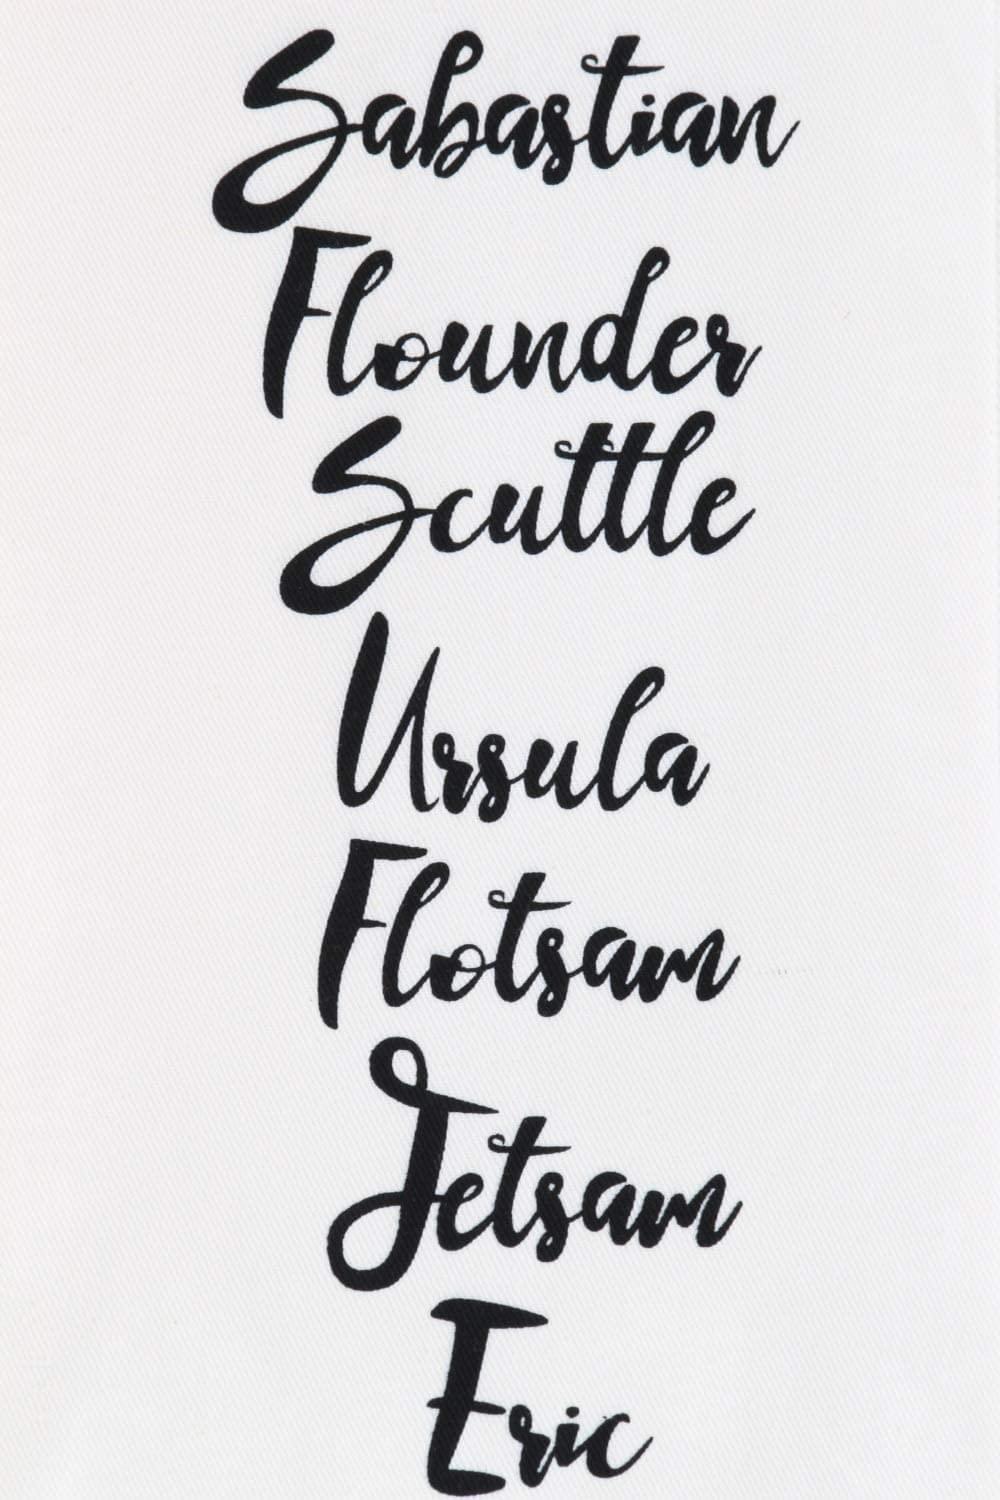 Sabastian
Flounder
Scuttle
Ursula
Flotsam
Jetsam
Eric